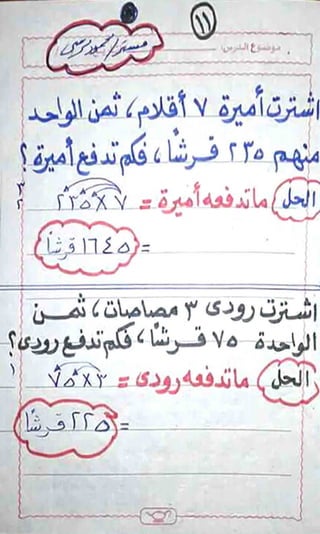 ١١
مستر/محمود مرسى
موضوع الدرس:
اشترت أميرة ٧ أقلام، ثمن الواحد
منهم ٢٣٥ قرشًا، فكم تدفع أميرة؟
الحل ما تدفعه أميرة = ٧ × ٢٣٥
٣
٢
= ١٦٤٥ قرشًا
اشترت رودى ٣ مصاصات، ثمن
الواحدة ٧٥ قرشًا، فكم تدفع رودى؟
الحل ما تدفعه رودى = ٣ × ٧٥
١
= ٢٢٥ قرشًا